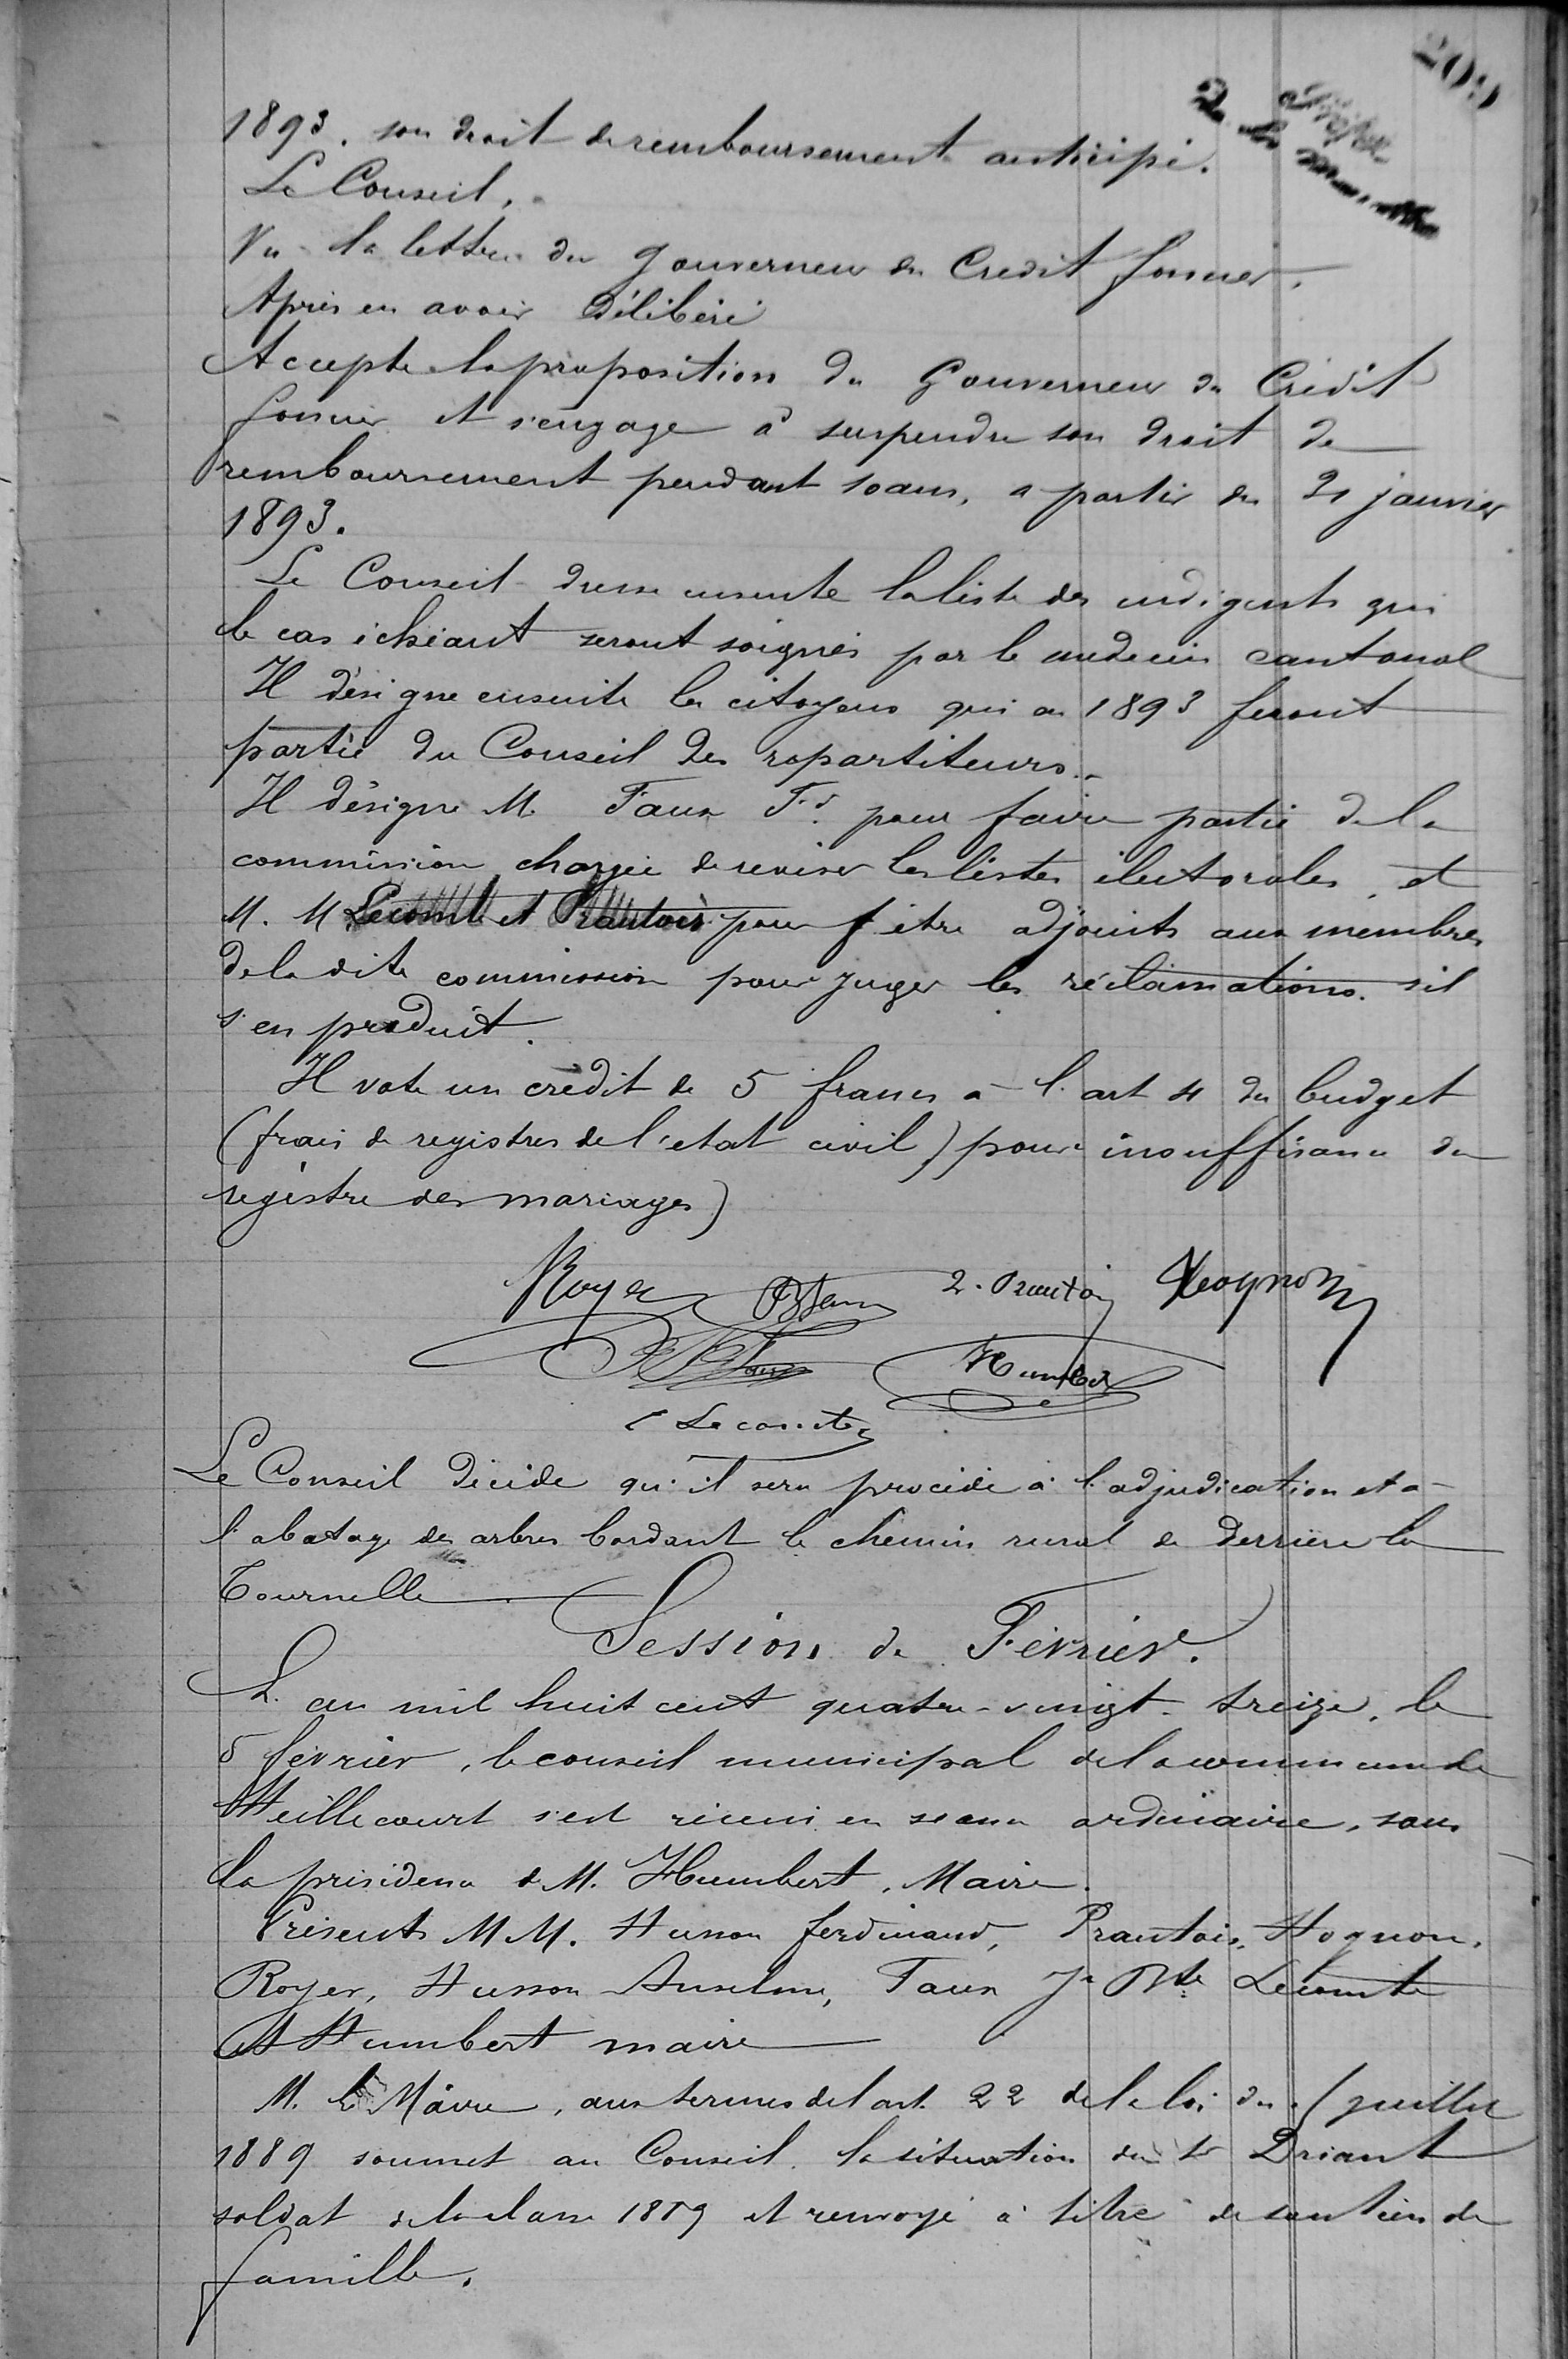 209
1893. son droit de remboursement anticipé.
Le Conseil,
Vu la lettre du gouverneur du Credit foncier,
Après en avoir délibéré
Accepte la proposition du Gouverneur du Crédit
foncier et s'engage à suspendre son droit de
remboursement pendant 10 ans, a partir du 21 janvier
1893.
Le Conseil dresse ensuite la liste des indigents qui
le cas échéant seront soignés par le médecin cantonal
Il désigne ensuite les citoyens qui en 1893 feront
partie du Conseil des répartiteurs.
Il désigne M. Faux Fd. pour faire partie de la
commission chargée de reviser les listes électorales, et
M. M Lecomte et Prantois pour f être adjoints aux membres
de la dite commission pour juger les réclamations. s'il
s'en produit.
Il vote un crédit de 5 francs a l'art 4 du budget
(frais de registres de l'etat civil) pour insuffisance du
registre des mariages)
Royer Prantois Hognon
Humbert
Lecomte
Le Conseil décide qu'il sera procédé à l'adjudication et a
l'abatage des arbres bordant le chemin rural de derrière la
Tournelle
Session de Février.
L'an mil huit cent quatre-vingt-treize, le
5 février, le conseil municipal de la commune de
Heillecourt s'est réuni en séance ordinaire, sous
la présidence de M. Humbert, Maire.
Présents M M. Husson ferdinand, Prantois, Hognon,
Royer, Husson Anselme, Faux Jn Bte Lecomte
et Humbert maire
M. le Maire, aux termes de l'art. 22 de la loi du juillet
1889 soumet au Conseil la situation du Sr Driant
soldat de la classe 1889 et renvoyé à titre de soutien de
famille.